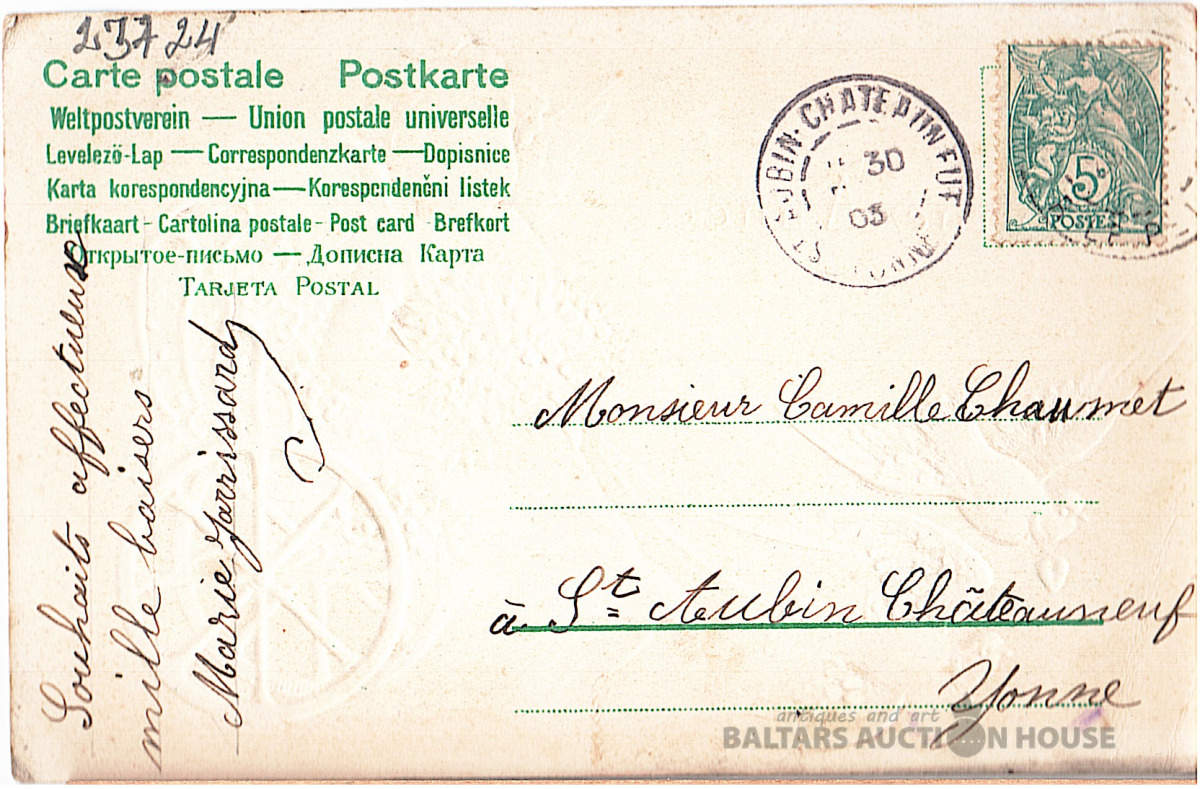 23724
Carte postale Postkarte
Weltpostverein — Union postale universelle
Levelező-Lap — Correspondenzkarte — Dopisnice
Karta korespondencyjna — Korespondenčni listek
Briefkaart - Cartolina postale - Post card - Brefkort
Открытое-письмо — Дописна Карта
TARJETA POSTAL
ST AUBIN-CHATEAUNEUF
30
03
YONNE
5
POSTES
Souhaits affectueux
mille baisers
Marie Jarrissard
Monsieur Camille Chaumet
à St Aubin Châteauneuf
Yonne
antiques and art
BALTARS AUCTION HOUSE